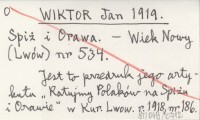 0
WIKTOR Jan 1919.
Spiż i Orawa. — Wiek Nowy
(Lwów) nr 534.
Jest to przedruk jego arty-
kułu „Ratujmy Polaków na Spiżu
i Orawie" w Kur. Lwow. r. 1918, nr 186.